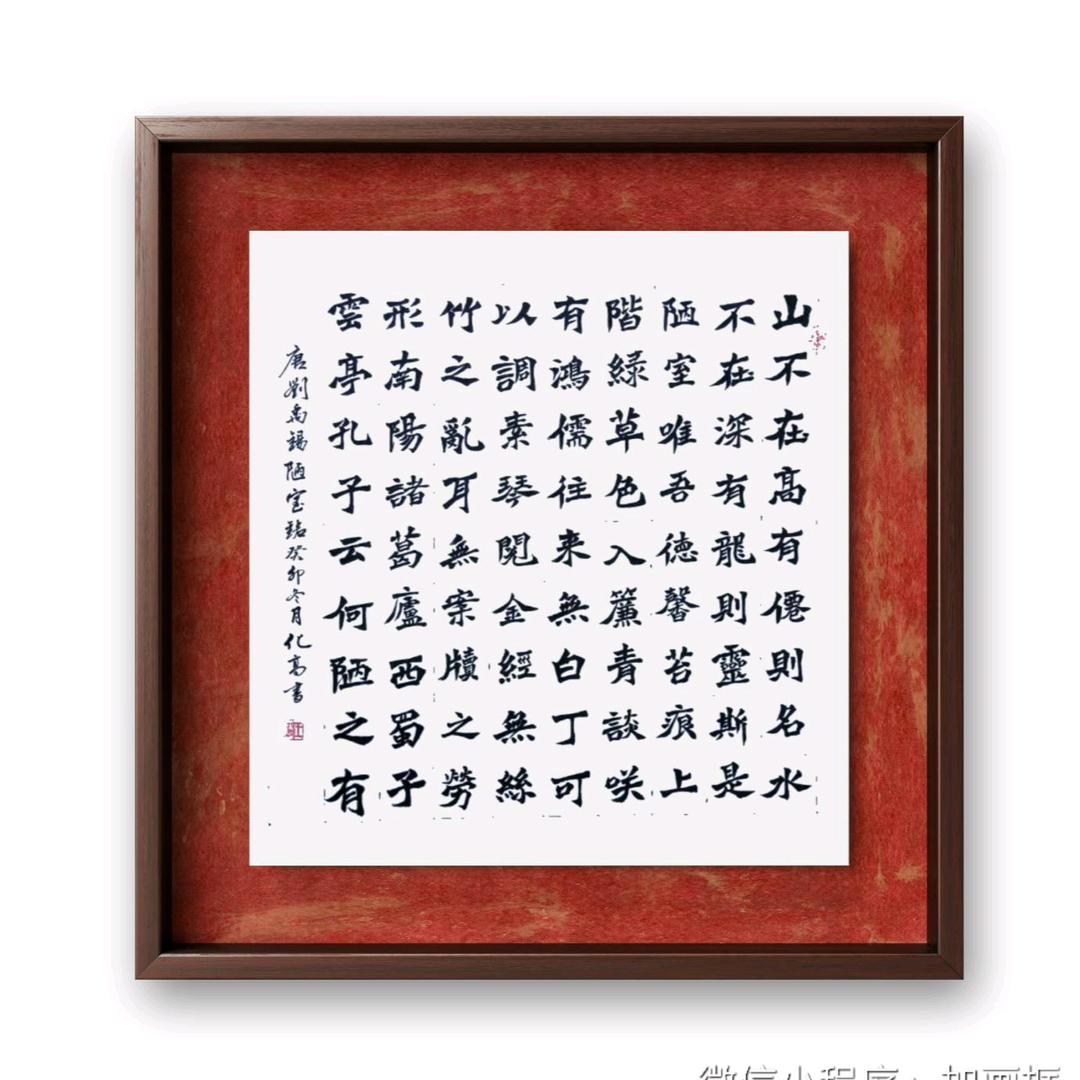 山不在髙有僊則名水
不在深有龍則靈斯是
陋室唯吾德馨苔痕上
階綠草色入簾青談咲
有鴻儒往来無白丁可
以調素琴閱金經無絲
竹之亂耳無案牘之勞
形南陽諸葛廬西蜀子
雲亭孔子云何陋之有
唐劉禹錫陋室銘癸卯冬月化高書
微信小程序：加画框